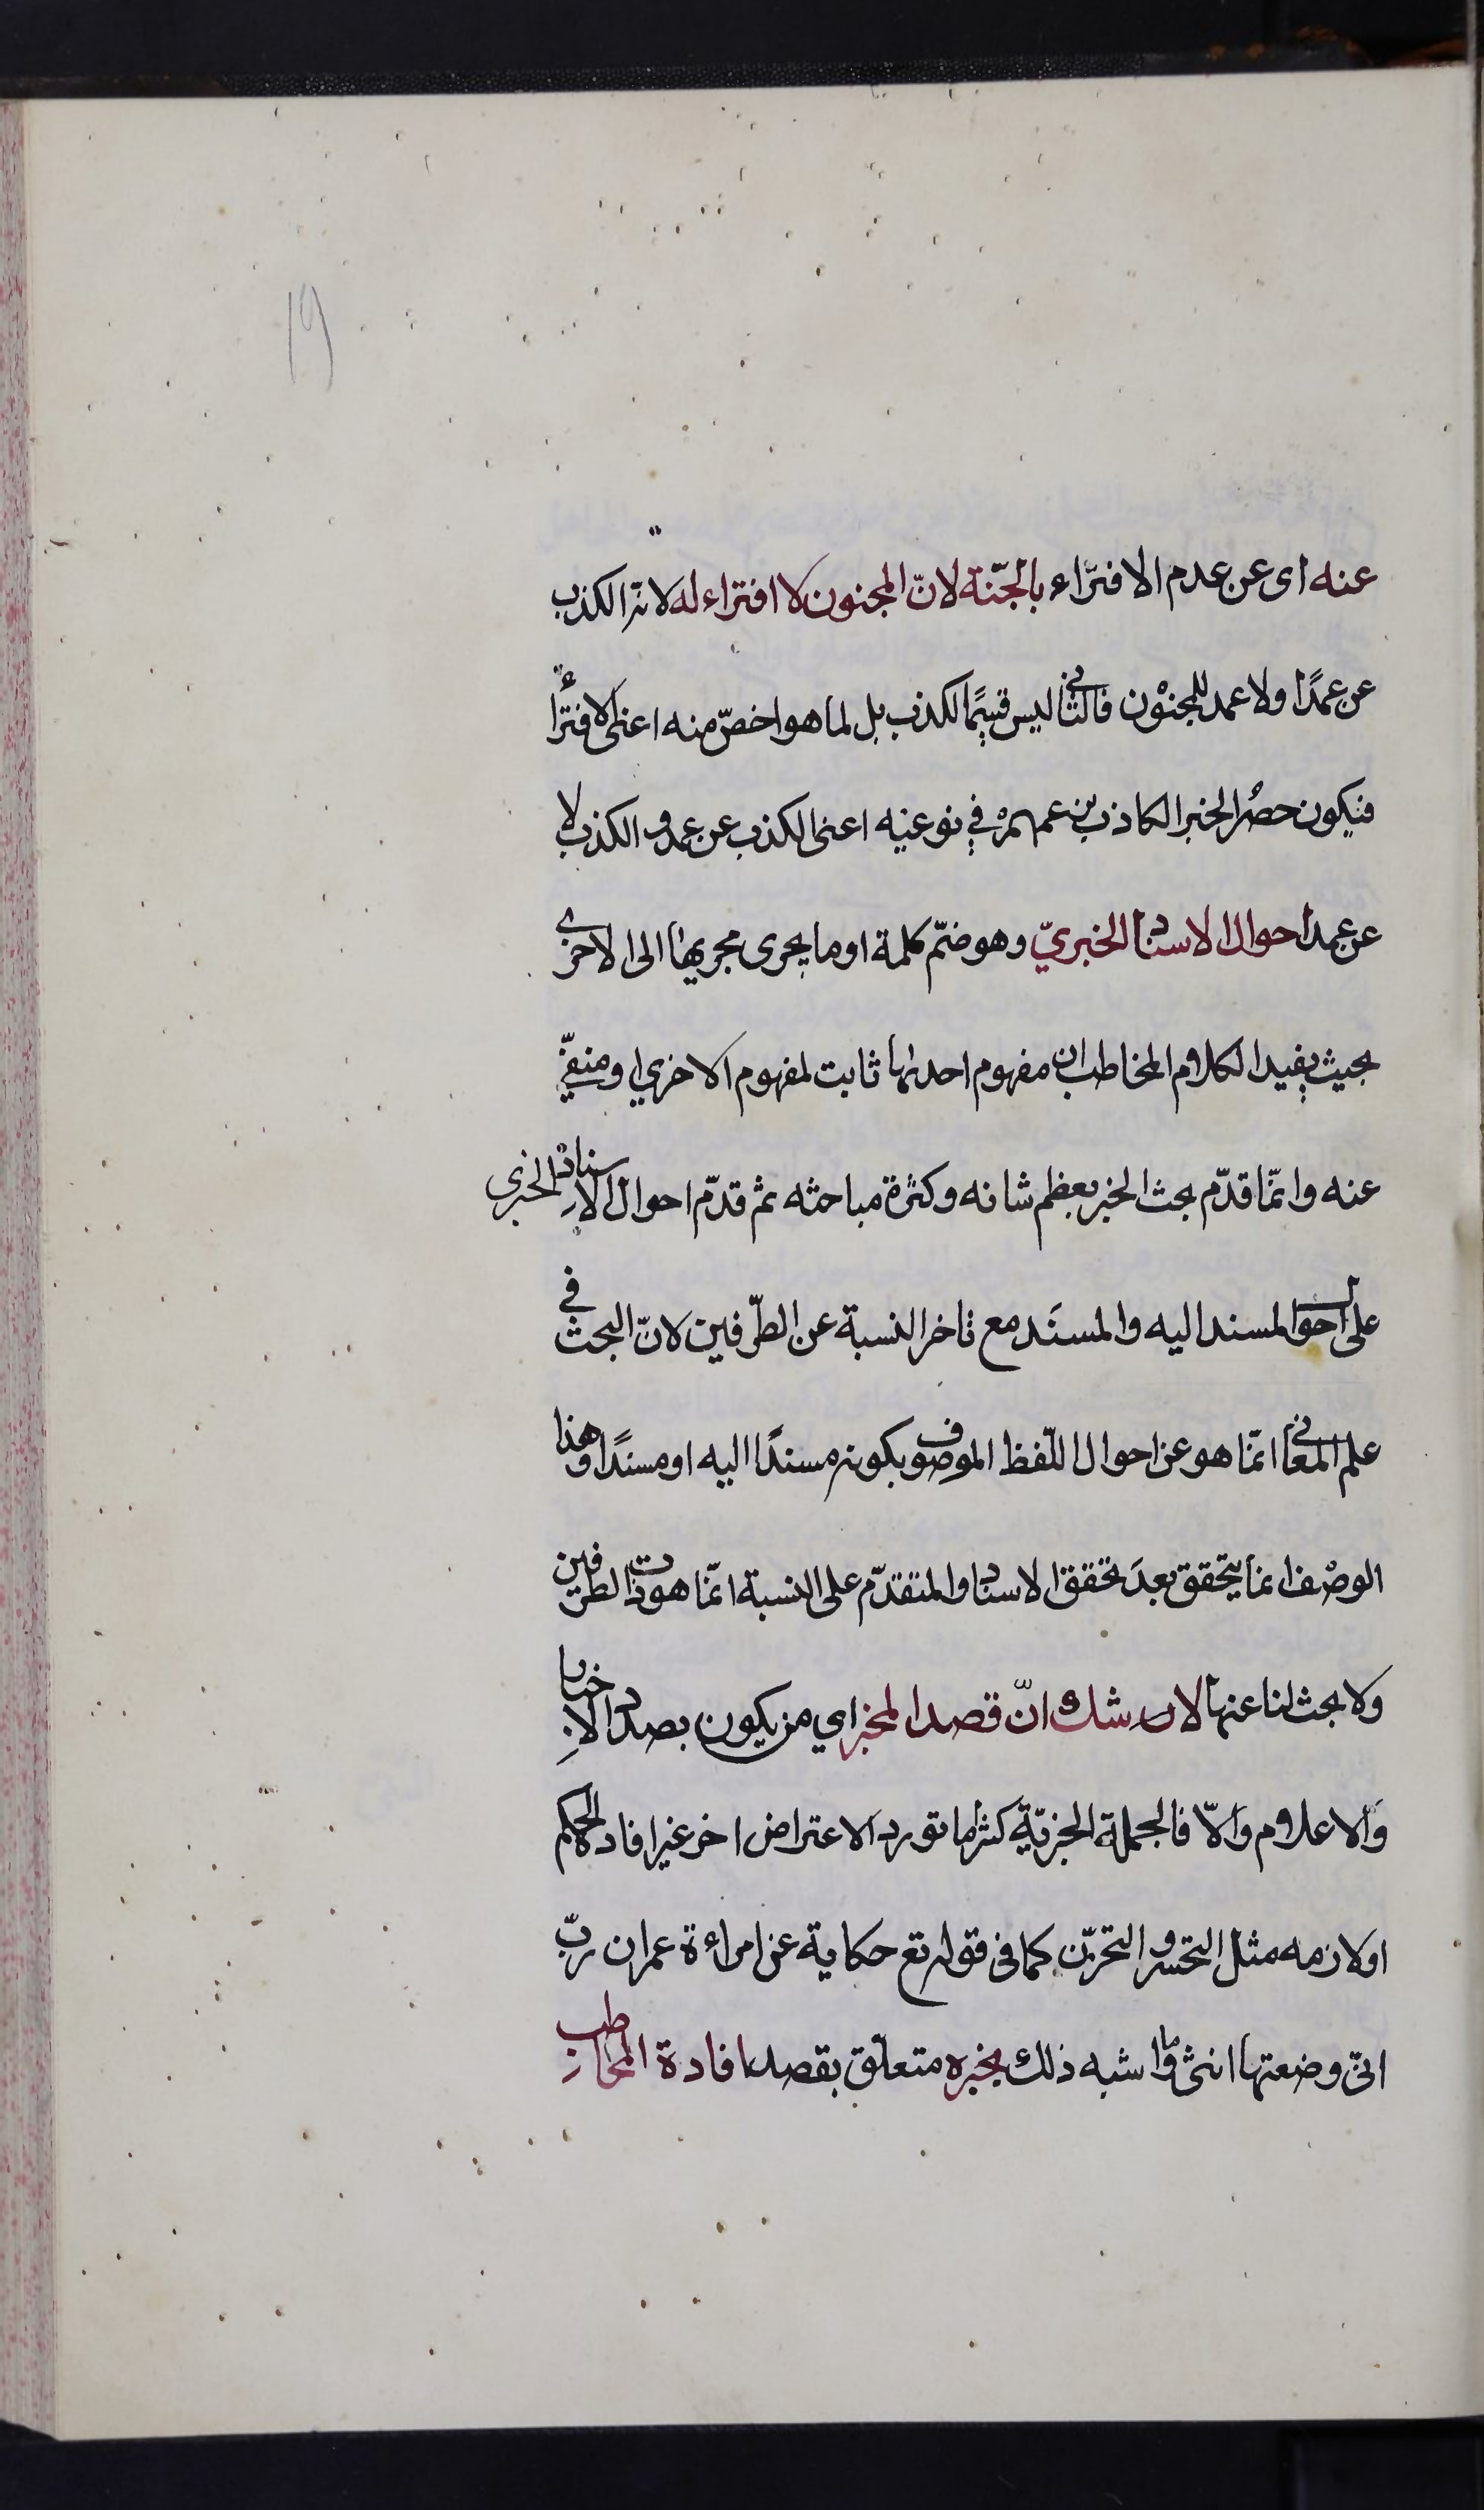 19
عنه اى عن عدم الافتراء بالجنّة لانّ المجنون لا افتراء له لانه الكذب
عن عمدًا ولا عمد للمجنون فالثانى ليس قسيمًا لكذب بل لما هو اخصّ منه اعنى الافتراء
فيكون حصُر الخبر الكاذب بزعمهم في نوعيه اعنى الكذب عن عمد و الكذب لا
عن عمد احوال الاسناد الخبريّ وهو ضمّ كلمة او ما يجرى مجريها الى الاخرى
بحيث يفيد الكلام المخاطب ان مفهوم احديهما ثابت لمفهوم الاخرى او منفىّ
عنه وانمّا قدّم بحث الخبر بعظم شانه وكثرة مباحثه ثم قدّم احوال الاسناد الخبرى
على احوال المسند اليه والمسنَد مع تاخر النسبة عن الطرّفين لانّ البحث فى
علم المعانى انمّا هو عن احوال اللّفظ الموصوف بكونه مسندًا اليه او مسندًا وهذا
الوصْف انما يتحقق بعدَ تحقق الاسناد والمتقدّم على النسبة انمّا هو ذات الطرفين
ولا بحث لنا عنها لا شك انّ قصد المخبر اي من يكون بصدد الاخبار
وَالاعلام وَالاّ فالجملة الخبريّة كثرًا ما تورد الاعتراض اخر غير افادة الحكم
اولازمه مثل التحسر و التحزّن كما فى قوله تع حكاية عن امراءة عمران ربّ
انىّ وضعتها انثى وما اشبه ذلك بخبره متعلّق بقصد افادة المخاطب